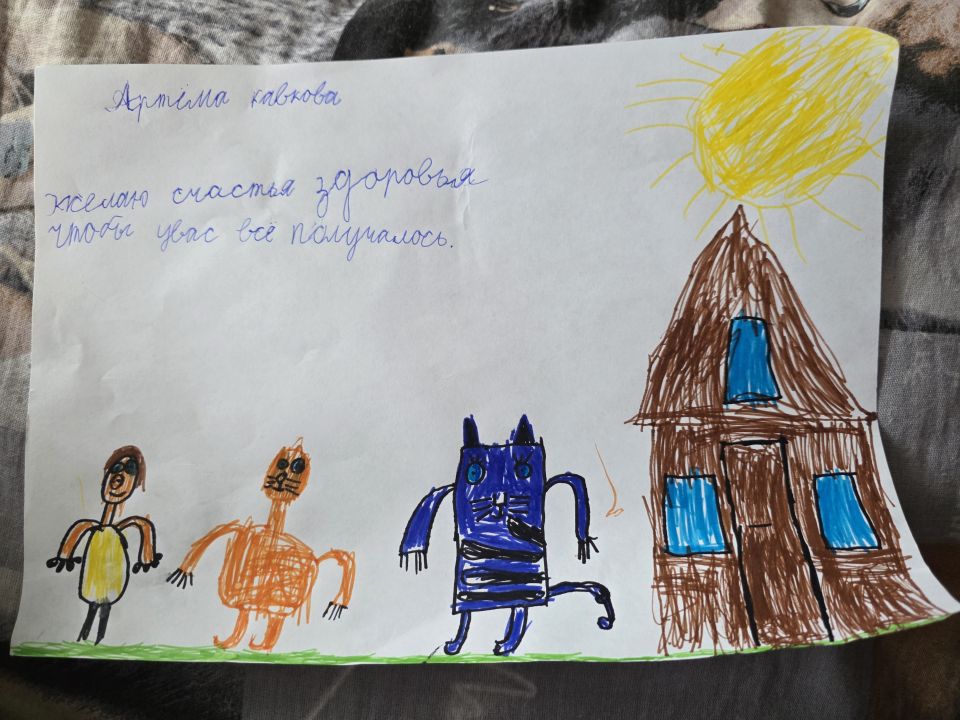 Артёма кавкова
желаю счастья здоровья
чтобы увас всё получалось.